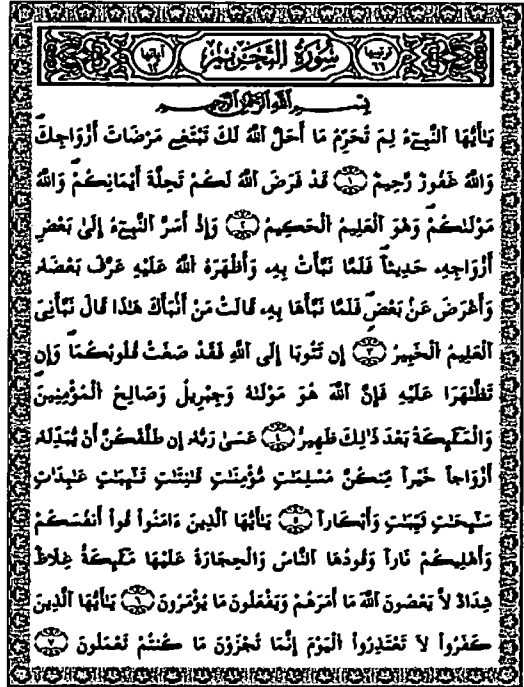 ترتيبها ٦٦ سُورَةُ التَّحْرِيمِ آياتها ١٢
بِسْمِ اللَّهِ الرَّحْمَٰنِ الرَّحِيمِ
يَٰأَيُّهَا اَلنَّبِيٓءُ لِمَ تُحَرِّمُ مَا أَحَلَّ اَللَّهُ لَكَ تَبْتَغِے مَرْضَاتَ أَزْوَٰجِكَ
وَاللَّهُ غَفُورٌ رَّحِيمٌ ١ قَدْ فَرَضَ اَللَّهُ لَكُمْ تَحِلَّةَ أَيْمَٰنِكُمْ وَاللَّهُ
مَوْلَىٰكُمْ وَهُوَ اَلْعَلِيمُ اُلْحَكِيمُ ٢ وَإِذْ أَسَرَّ اَلنَّبِيٓءُ إِلَىٰ بَعْضِ
أَزْوَٰجِهِۦ حَدِيثاً فَلَمَّا نَبَّأَتْ بِهِۦ وَأَظْهَرَهُ اُللَّهُ عَلَيْهِ عَرَّفَ بَعْضَهُۥ
وَأَعْرَضَ عَنۢ بَعْضٍ فَلَمَّا نَبَّأَهَا بِهِۦ قَالَتْ مَنْ أَنۢبَأَكَ هَٰذَا قَالَ نَبَّأَنِىَ
اَلْعَلِيمُ اُلْخَبِيرُ ٣ إِن تَتُوبَا إِلَى اَللَّهِ فَقَدْ صَغَتْ قُلُوبُكُمَا وَإِن
تَظَّٰهَرَا عَلَيْهِ فَإِنَّ اَللَّهَ هُوَ مَوْلَىٰهُ وَجِبْرِيلُ وَصَٰلِحُ اُلْمُؤْمِنِينَ
وَالْمَلَٰٓئِكَةُ بَعْدَ ذَٰلِكَ ظَهِيرٌ ٤ عَسَىٰ رَبُّهُۥ إِن طَلَّقَكُنَّ أَنْ يُّبَدِّلَهُۥ
أَزْوَٰجاً خَيْراً مِّنكُنَّ مُسْلِمَٰتٍ مُّؤْمِنَٰتٍ قَٰنِتَٰتٍ تَٰٓئِبَٰتٍ عَٰبِدَٰتٍ
سَٰٓئِحَٰتٍ ثَيِّبَٰتٍ وَأَبْكَاراً ٥ يَٰأَيُّهَا اَلَّذِينَ ءَامَنُواْ قُواْ أَنفُسَكُمْ
وَأَهْلِيكُمْ نَاراً وَقُودُهَا اَلنَّاسُ وَالْحِجَارَةُ عَلَيْهَا مَلَٰٓئِكَةٌ غِلَاظٌ
شِدَادٌ لَّا يَعْصُونَ اَللَّهَ مَا أَمَرَهُمْ وَيَفْعَلُونَ مَا يُؤْمَرُونَ ٦ يَٰأَيُّهَا اَلَّذِينَ
كَفَرُواْ لَا تَعْتَذِرُواْ اُلْيَوْمَ إِنَّمَا تُجْزَوْنَ مَا كُنتُمْ تَعْمَلُونَ ٧